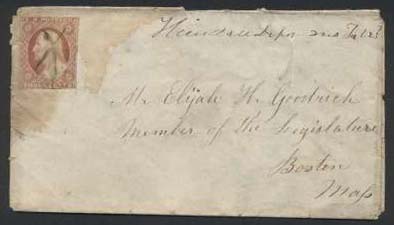 Hinsdale Depot Mass Feb 23
Mr Elijah H. Goodrich
Member of the Legislature
Boston
Mass